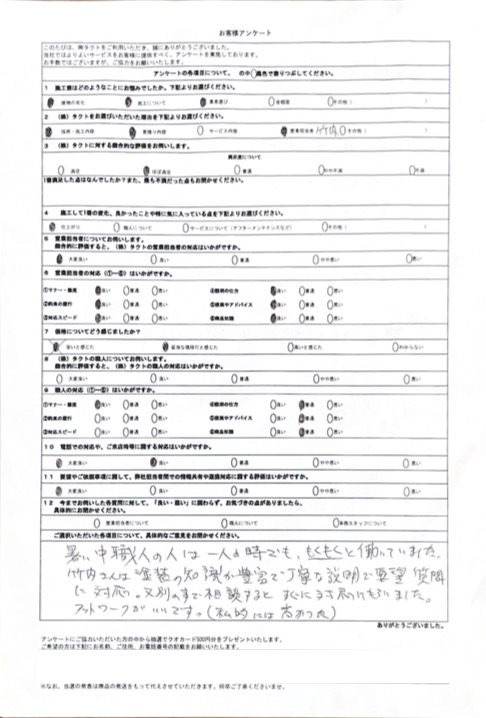 お客様アンケート
このたびは、㈱タクトをご利用いただき、誠にありがとうございました。
当社ではよりよいサービスをお客様に提供すべく、アンケートを実施しております。
お手数ではございますが、ご協力をお願いいたします。
アンケートの各項目について、○の中を黒色で塗りつぶしてください。
1 施工前はどのようなことにお悩みでしたか。下記よりお選びください。
建物の劣化 施工について 業者選び 金額面 その他（ ）
2 （株）タクトをお選びいただいた理由を下記よりお選びください。
技術・施工内容 見積り内容 サービス内容 営業担当者 竹内 その他（ ）
3 （株）タクトに対する総合的な評価をお伺いします。
満足度について
満足 ほぼ満足 普通 やや不満 不満
1番満足した点はなんでしたか？また、最も不満だった点もお聞かせください。
4 施工して1番の変化、良かったことや特に気に入っている点を下記よりお選びください。
仕上がり 職人について サービスについて（アフターメンテナンスなど） その他（ ）
5 営業担当者についてお伺いします。
総合的に評価すると、（株）タクトの営業担当者の対応はいかがですか。
大変良い 良い 普通 やや悪い 悪い
6 営業担当者の対応（①～⑥）はいかがですか。
①マナー・態度 良い 普通 悪い ④説明の仕方 良い 普通 悪い
②約束の履行 良い 普通 悪い ⑤提案やアドバイス 良い 普通 悪い
③対応スピード 良い 普通 悪い ⑥商品知識 良い 普通 悪い
7 価格についてどう感じましたか？
安いと感じた 妥当な価格だと感じた 高いと感じた わからない
8 （株）タクトの職人についてお伺いします。
総合的に評価すると、（株）タクトの職人の対応はいかがですか。
大変良い 良い 普通 やや悪い 悪い
9 職人の対応（①～⑥）はいかがですか。
①マナー・態度 良い 普通 悪い ④説明の仕方 良い 普通 悪い
②約束の履行 良い 普通 悪い ⑤提案やアドバイス 良い 普通 悪い
③対応スピード 良い 普通 悪い ⑥商品知識 良い 普通 悪い
10 電話での対応や、ご来店時等に関する対応はいかがですか。
大変良い 良い 普通 やや悪い 悪い
11 要望やご依頼事項に関して、弊社担当者間での情報共有や連携対応に関する評価はいかがですか。
大変良い 良い 普通 やや悪い 悪い
12 今までお伺いした各質問に対して、「良い・悪い」に関わらず、お気づきの点がありましたら、
具体的にお聞かせください。
営業担当者について 職人について 事務スタッフについて
ご選択いただいた各項目について、具体的なご意見をお聞かせください。
暑い中職人の人は一人の時でも、もくもくと働いていました。
竹内さんは塗装の知識が豊富で丁寧な説明で要望 質問
に対応。又別の事で相談すると すぐに対応してもらいました。
フットワークがいいです。（私的には高かった）
ありがとうございました。
アンケートにご協力いただいた方の中から抽選でクオカード500円分をプレゼントいたします。
ご希望の方は下記にお名前、ご住所、お電話番号の記載をお願いいたします。
※なお、当選の発表は商品の発送をもって代えさせていただきます。何卒ご了承くださいませ。